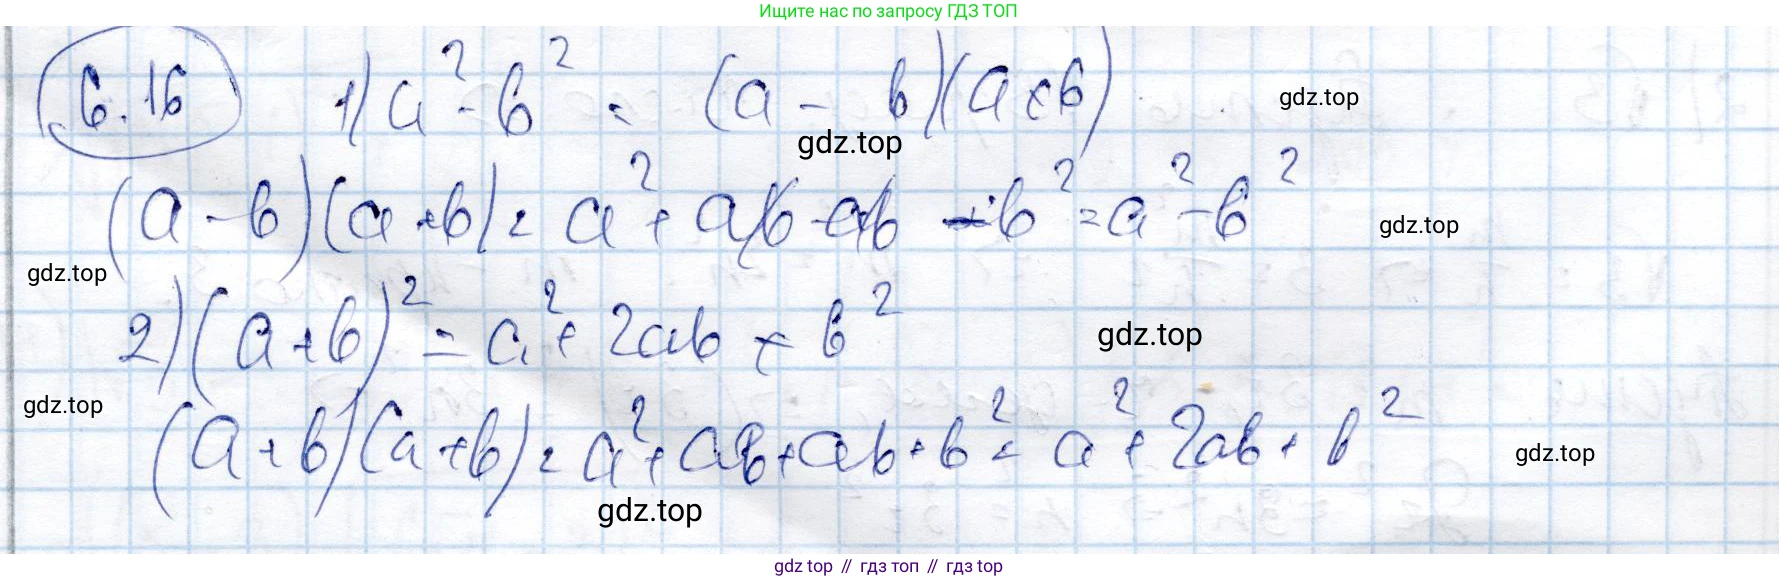 Ищите нас по запросу ГДЗ ТОП
6.16 1) a² - b² = (a - b)(a + b)
gdz.top
gdz.top
(a - b)(a + b) = a² + ab - ab - b² = a² - b²
gdz.top
gdz.top
2) (a + b)² = a² + 2ab + b²
gdz.top
gdz.top
(a + b)(a + b) = a² + ab + ab + b² = a² + 2ab + b²
gdz.top
gdz.top
gdz top // гдз топ // gdz top